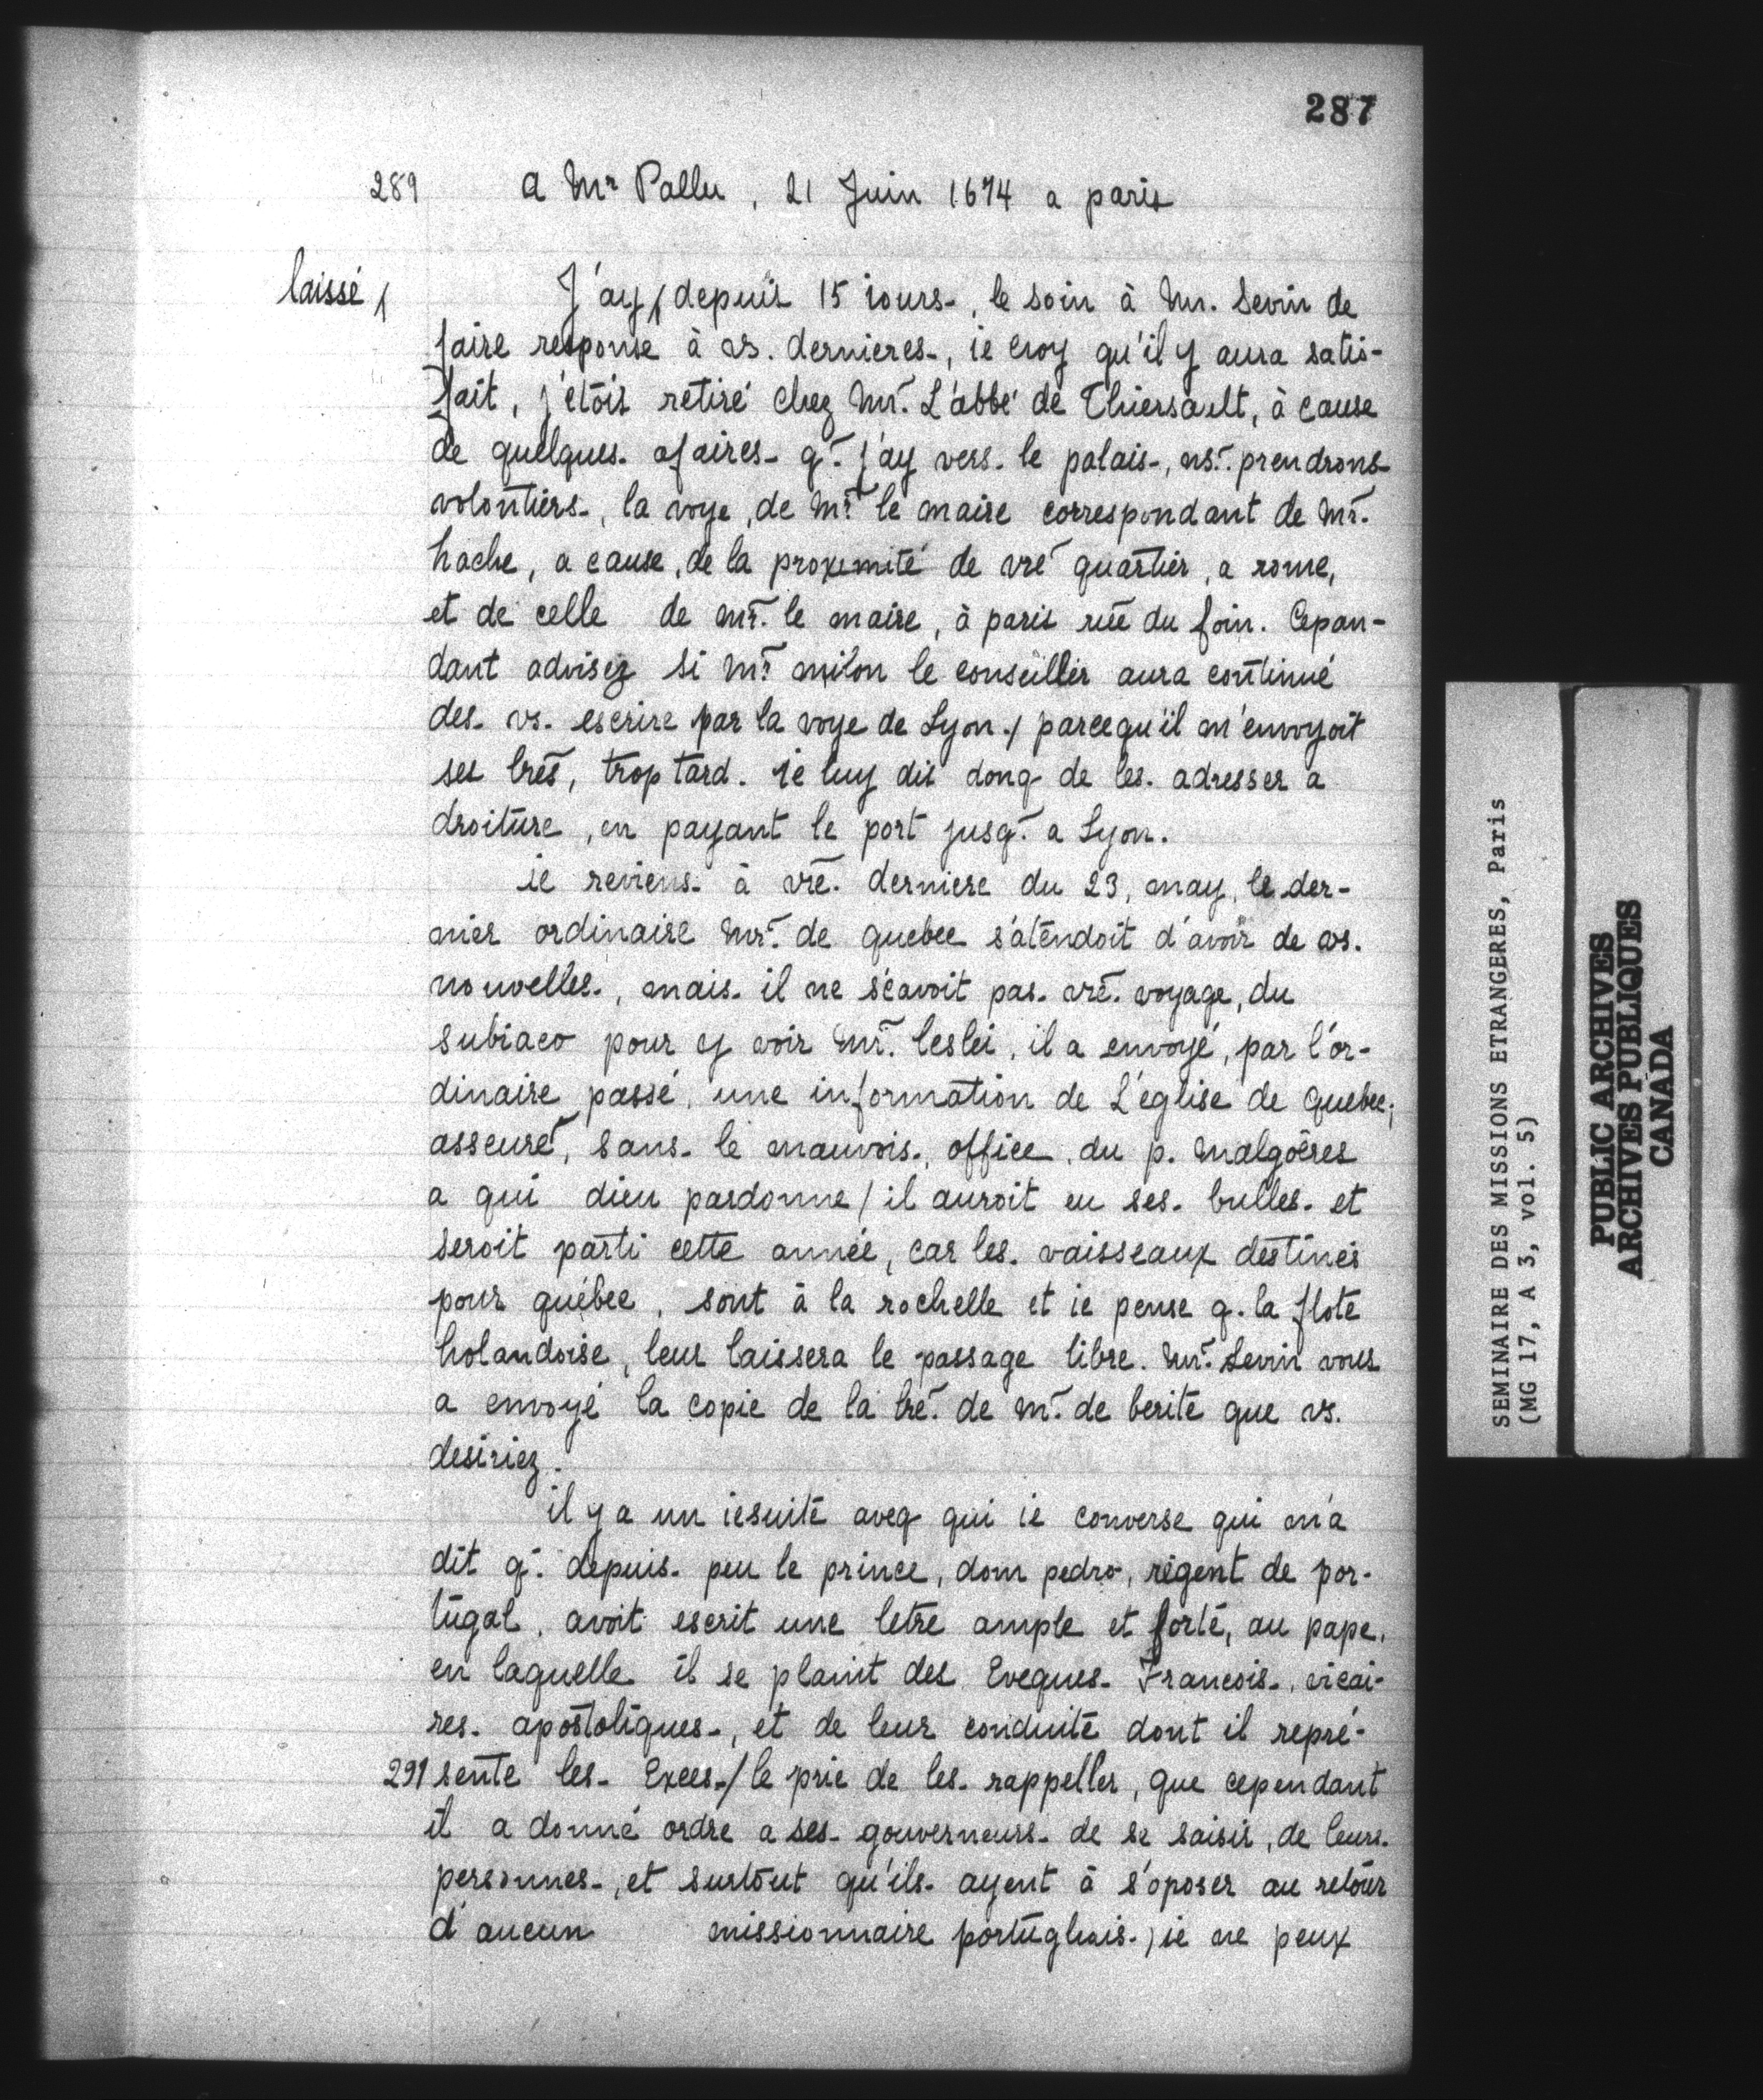 287
289 a Mr Pallu, 21 Juin 1674 a paris
laissé / J'ay / depuis 15 iours, le soin à Mr. Sevin de
faire response à vs. dernieres, ie croy qu'il y aura satis-
fait, j'étois retiré chez Mr. L'abbé de Thiersault, à cause
de quelques afaires q. j'ay vers le palais, ns. prendrons
volontiers, la voye, de Mr. le maire correspondant de Mr.
hache, a cause, de la proximité de vre quartier, a rome,
et de celle de mr. le maire, à paris rüe du foin. Cepan-
dant advisez si Mr. milon le conseiller aura continué
des. vs. escrire par la voye de Lyon / parcequ'il m'envoyoit
ses lres, trop tard. ie luy dis donq de les adresser a
droiture, en payant le port jusq. a Lyon.
ie reviens à vre. derniere du 23, may, le der-
nier ordinaire Mr. de quebec s'atendoit d'avoir de vs.
nouvelles, mais il ne sçavoit pas vre. voyage, du
subiaco pour y voir Mr. leslei, il a envoyé, par l'or-
dinaire passé, une information de L'église de quebec,
asseuret, sans le mauvois, office, du p. Malgoëres
a qui dieu pardonne / il auroit eu ses bulles et
seroit parti cette année, car les vaisseaux destinés
pour québec, sont à la rochelle et ie pense q. la flote
holandoise, leur laissera le passage libre. Mr. Sevin vous
a envoyé la copie de la lre. de mr. de berite que vs.
desiriez.
il y a un iesuite aveq qui ie converse qui m'a
dit q. depuis peu le prince, dom pedro, régent de por-
tugal, avoit escrit une letre ample et forte, au pape,
en laquelle il se plaint des Eveques Francois, vicai-
res apostoliques, et de leur conduite dont il repré-
291 sente les Exces / le prie de les rappeller, que cependant
il a donné ordre a ses gouverneurs de se saisir, de leurs
personnes, et surtout qu'ils ayent à s'oposer au retour
d'aucun missionnaire portughais. ) ie ne peux
SEMINAIRE DES MISSIONS ETRANGERES, Paris
(MG 17, A 3, vol. 5)
PUBLIC ARCHIVES
ARCHIVES PUBLIQUES
CANADA